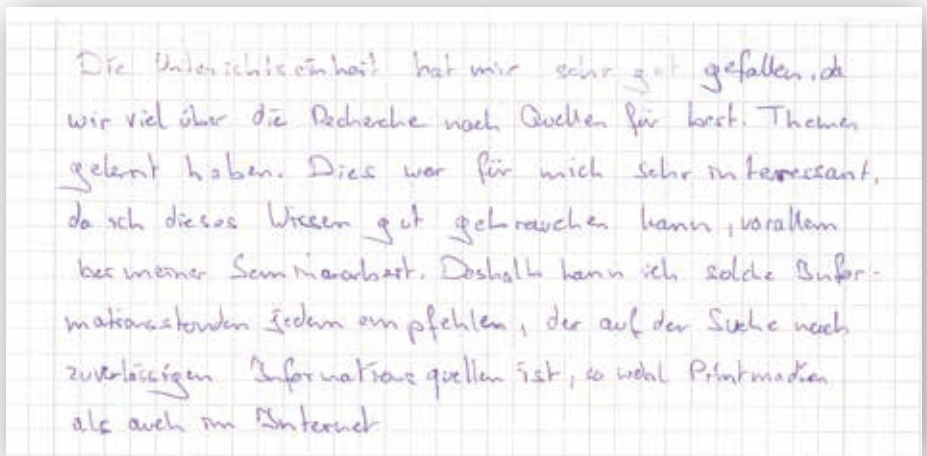 Die Unterichtseinheit hat mir sehr gut gefallen, da
wir viel über die Recherche nach Quellen für best. Themen
gelernt haben. Dies war für mich sehr interessant,
da ich dieses Wissen gut gebrauchen kann, vorallem
bei meiner Seminararbeit. Deshalb kann ich solche Infor-
mationsstunden jedem empfehlen, der auf der Suche nach
zuverlässigen Informations quellen ist, so wohl Printmedien
als auch im Internet